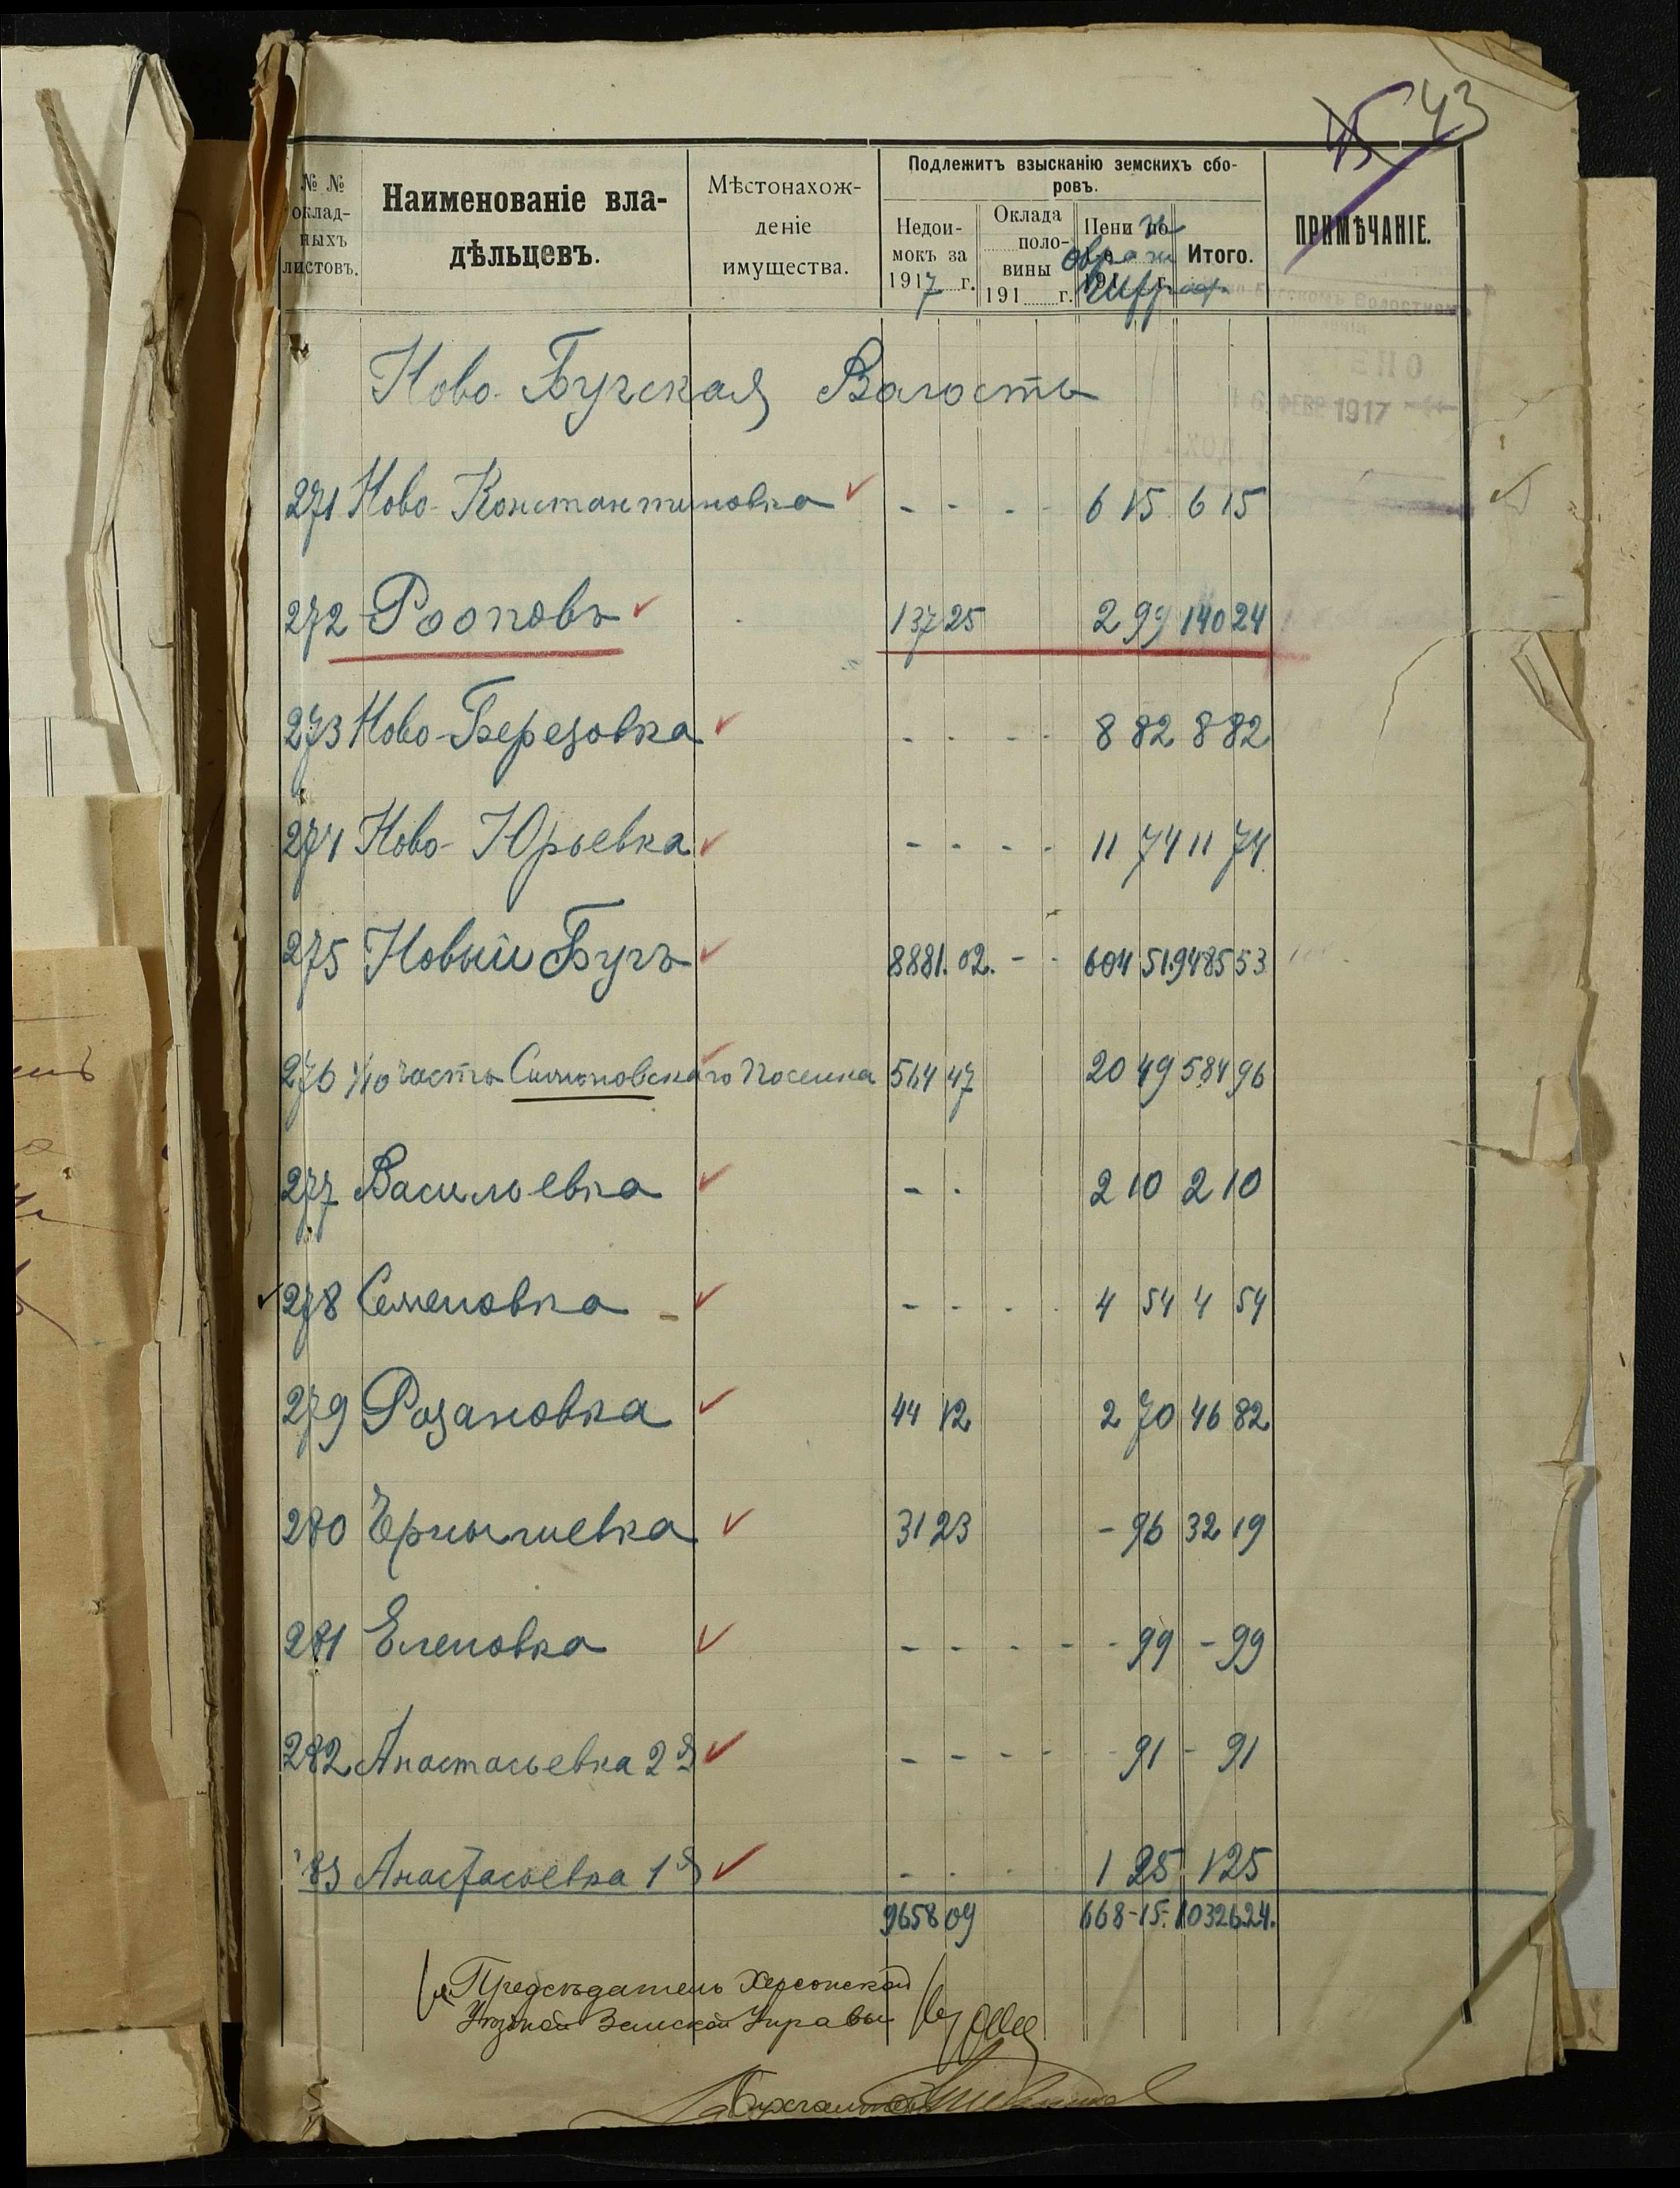 43
№ № оклад-ныхъ листовъ.
Наименованіе вла-дѣльцевъ.
Мѣстонахож-деніе имущества.
Подлежитъ взысканію земскихъ сбо-ровъ.
Недои-мокъ за 1917 г.
Оклада поло-вины 191 г.
Пени по
Итого.
ПРИМѢЧАНІЕ.
Ново-Бугская Волость
271 Ново-Константиновка - - - - 6 15 6 15
272 Рооповъ 137 25 2 99 140 24
273 Ново-Березовка - - - - 8 82 8 82
274 Ново-Юрьевка - - - - 11 74 11 74
275 Новый Бугъ 8881. 02. - - 604 51. 9485 53
276 1/10 часть Симоновскаго Поселка 564 47 20 49 584 96
277 Васильевка - - 2 10 2 10
278 Семеновка - - - - 4 54 4 54
279 Розановка 44 12 2 70 46 82
280 Чернышевка 31 23 - 96 32 19
281 Еленовка - - - - - 99 - 99
282 Анастасьевка 2я - - - - - 91 - 91
83 Анастасьевка 1я - - 1 25 1 25
9658 09 668-15. 10326.24.
Председатель Херсонской
Уѣздной Земской Управы
Бухгалтеръ
1917